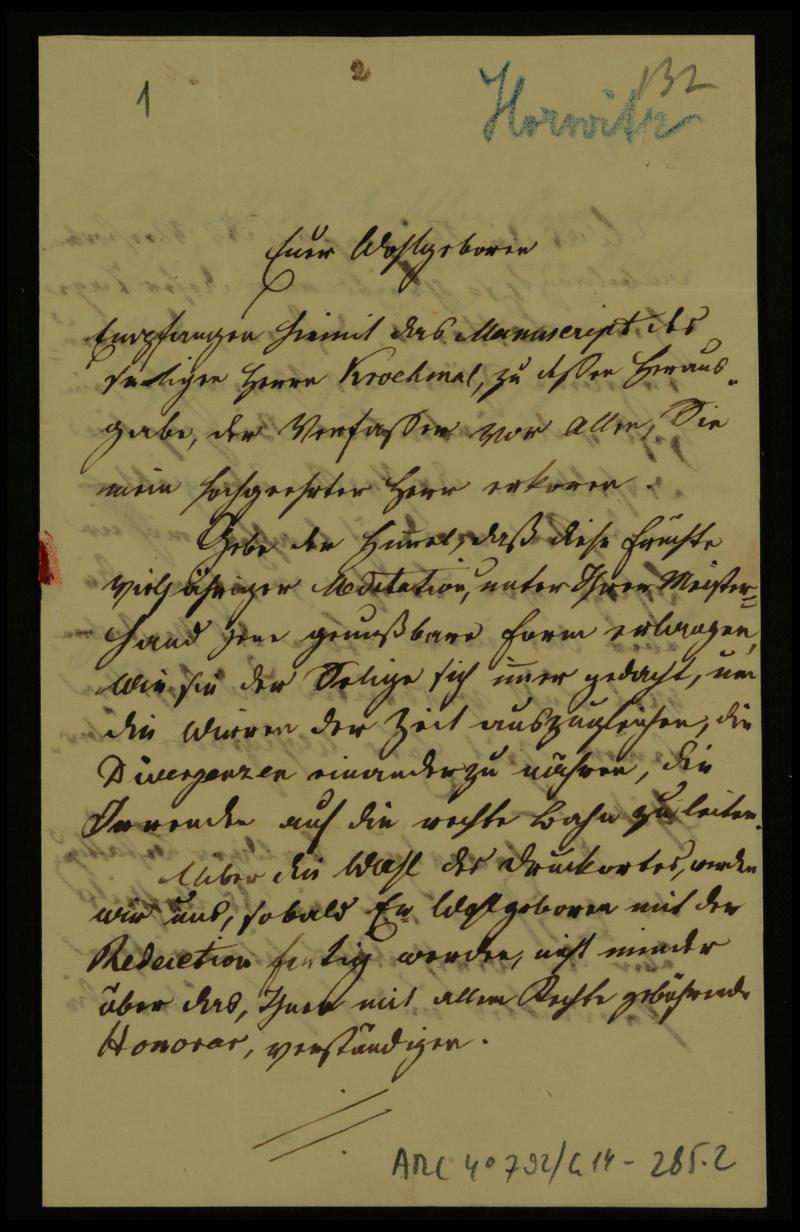 1
2
132
Horwitz
Euer Wohlgeboren
Empfangen hiemit das Manuscript des
seeligen Herrn Krochmal, zu dessen Heraus-
gabe, der Verfasser vor Allen, Sie
mein hochgeehrter Herr erkoren.
Gebe der Himel, daß diese Früchte
vieljähriger Meditation, unter Ihrer Meister-
hand jene genußbare Form erlangen,
wie sie der Selige sich imer gedacht, um
die Wirren der Zeit auszugleichen, die
Divergenzen einander zu nähren, die
Irrenden auf die rechte Bahn zu leiten.
Über die Wahl des Druckortes, werden
wir uns, sobald Ew Wohlgeboren mit der
Redaction fertig werden, nicht minder
über das, Ihnen mit allem Rechte gebührende
Honorar, verständigen.
ARC 4° 792/G14 - 285.2